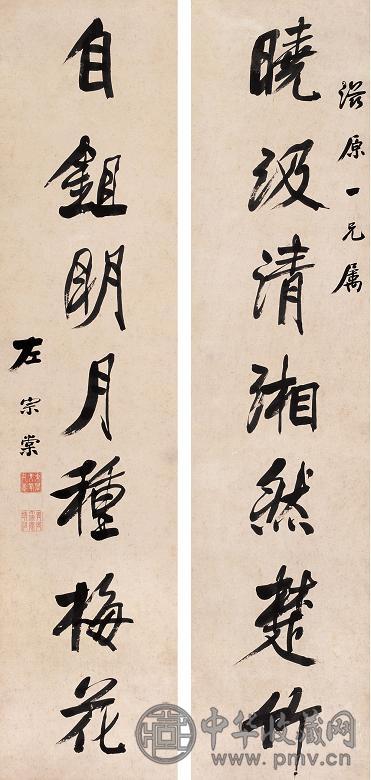 原一兄属
曉汲清湘然楚竹
自鉏明月種梅花
左宗棠
中华收藏网
www.pmv.cn